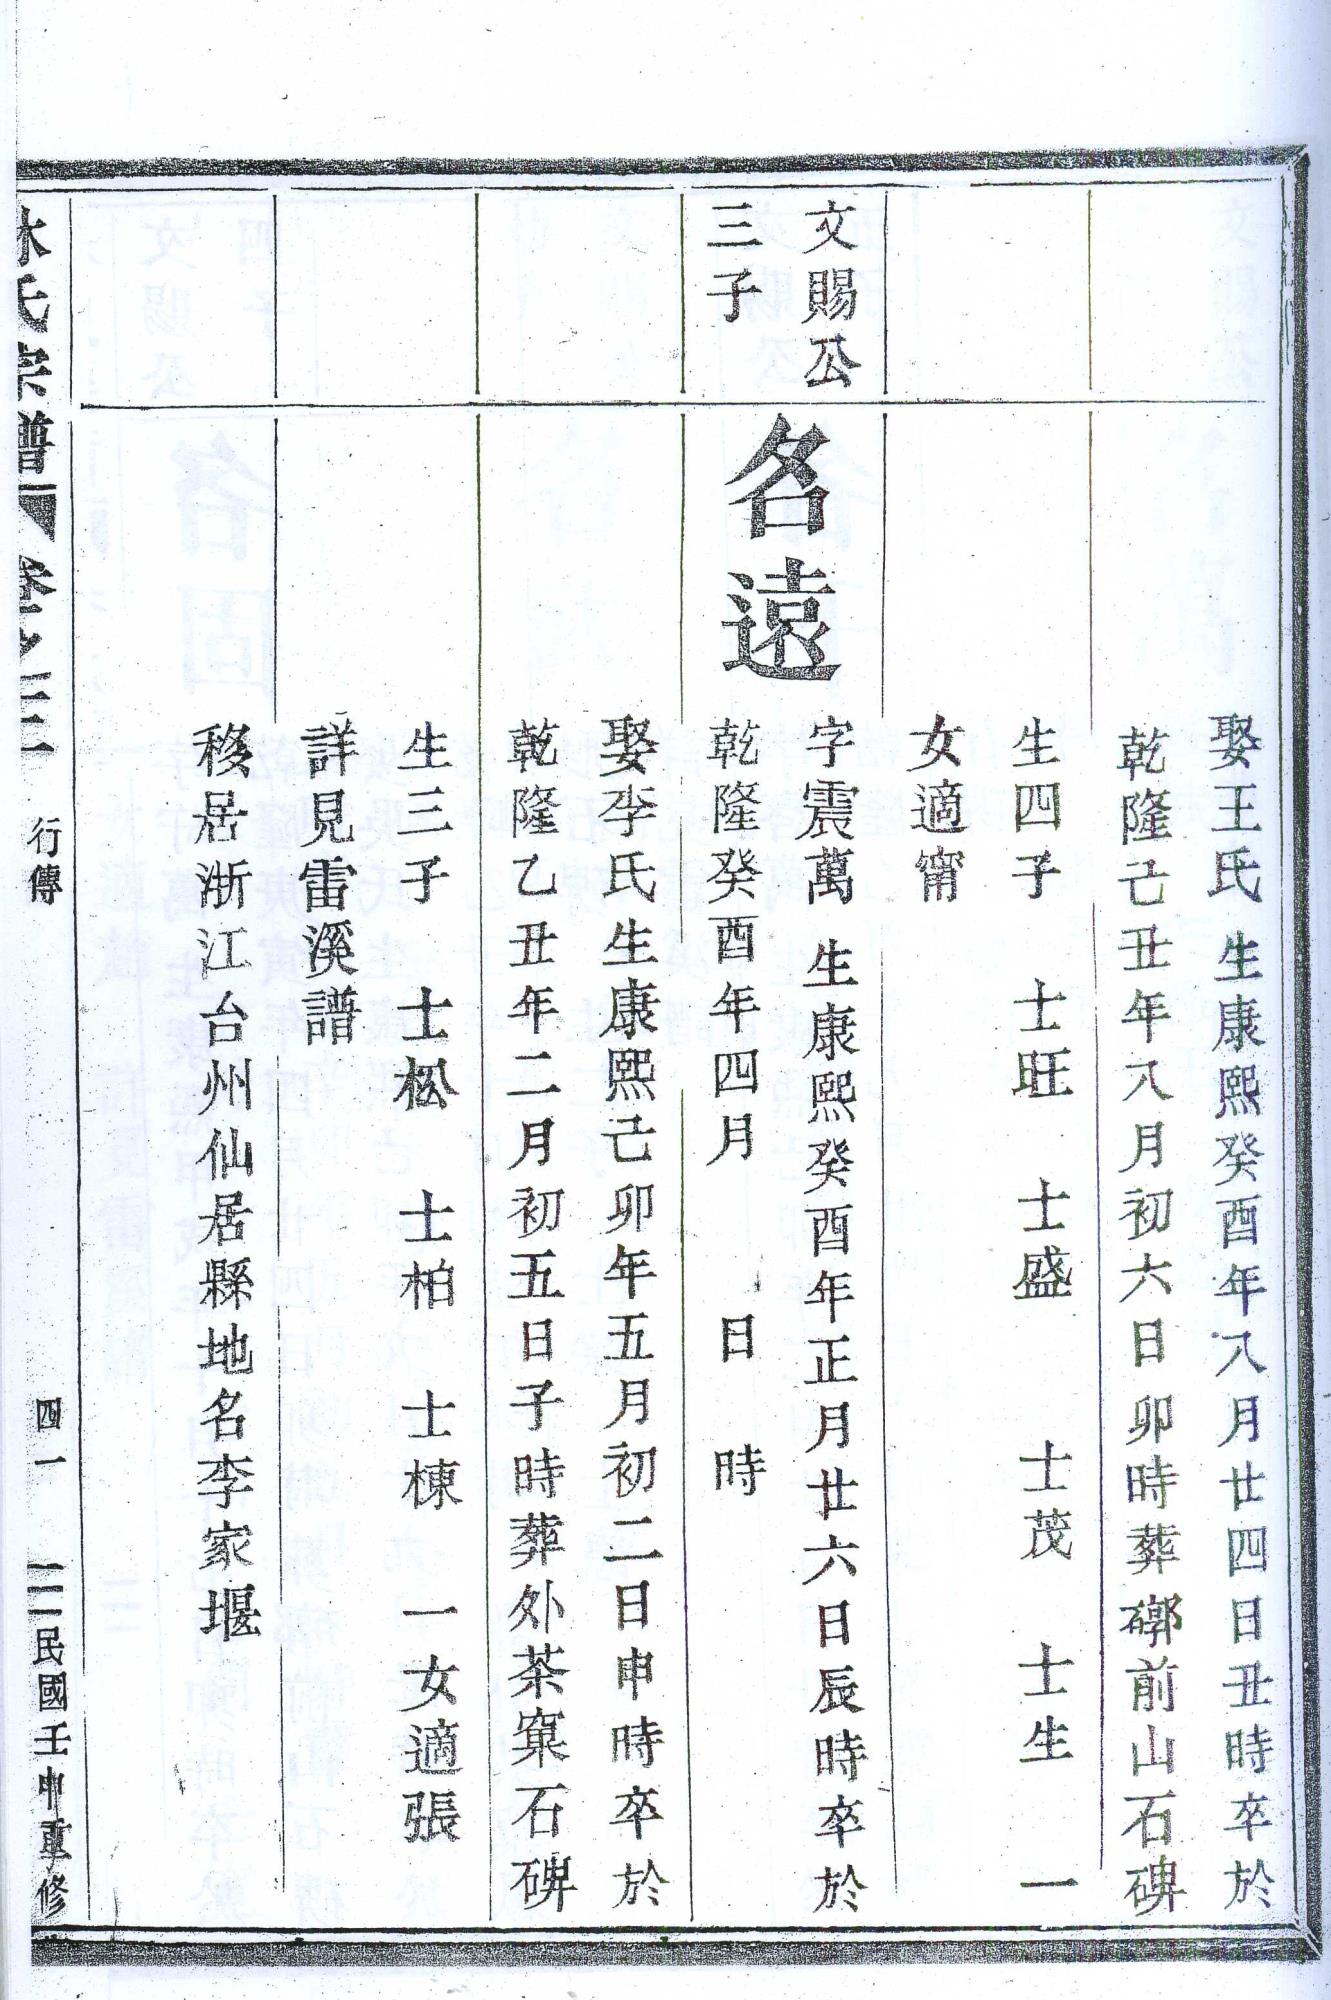 娶王氏 生康熙癸酉年八月廿四日丑時卒於
乾隆己丑年八月初六日卯時葬𥕖前山石碑
生四子 士旺 士盛 士茂 士生 一
女適甯
文賜公
三子
名遠
字震萬 生康熙癸酉年正月廿六日辰時卒於
乾隆癸酉年四月 日 時
娶李氏生康熙己卯年五月初二日申時卒於
乾隆乙丑年二月初五日子時葬外茶窠石碑
生三子 士松 士柏 士棟 一女適張
詳見雷溪譜
移居浙江台州仙居縣地名李家堰
林氏宗譜 卷之三 行傳 四一 民國壬申重修